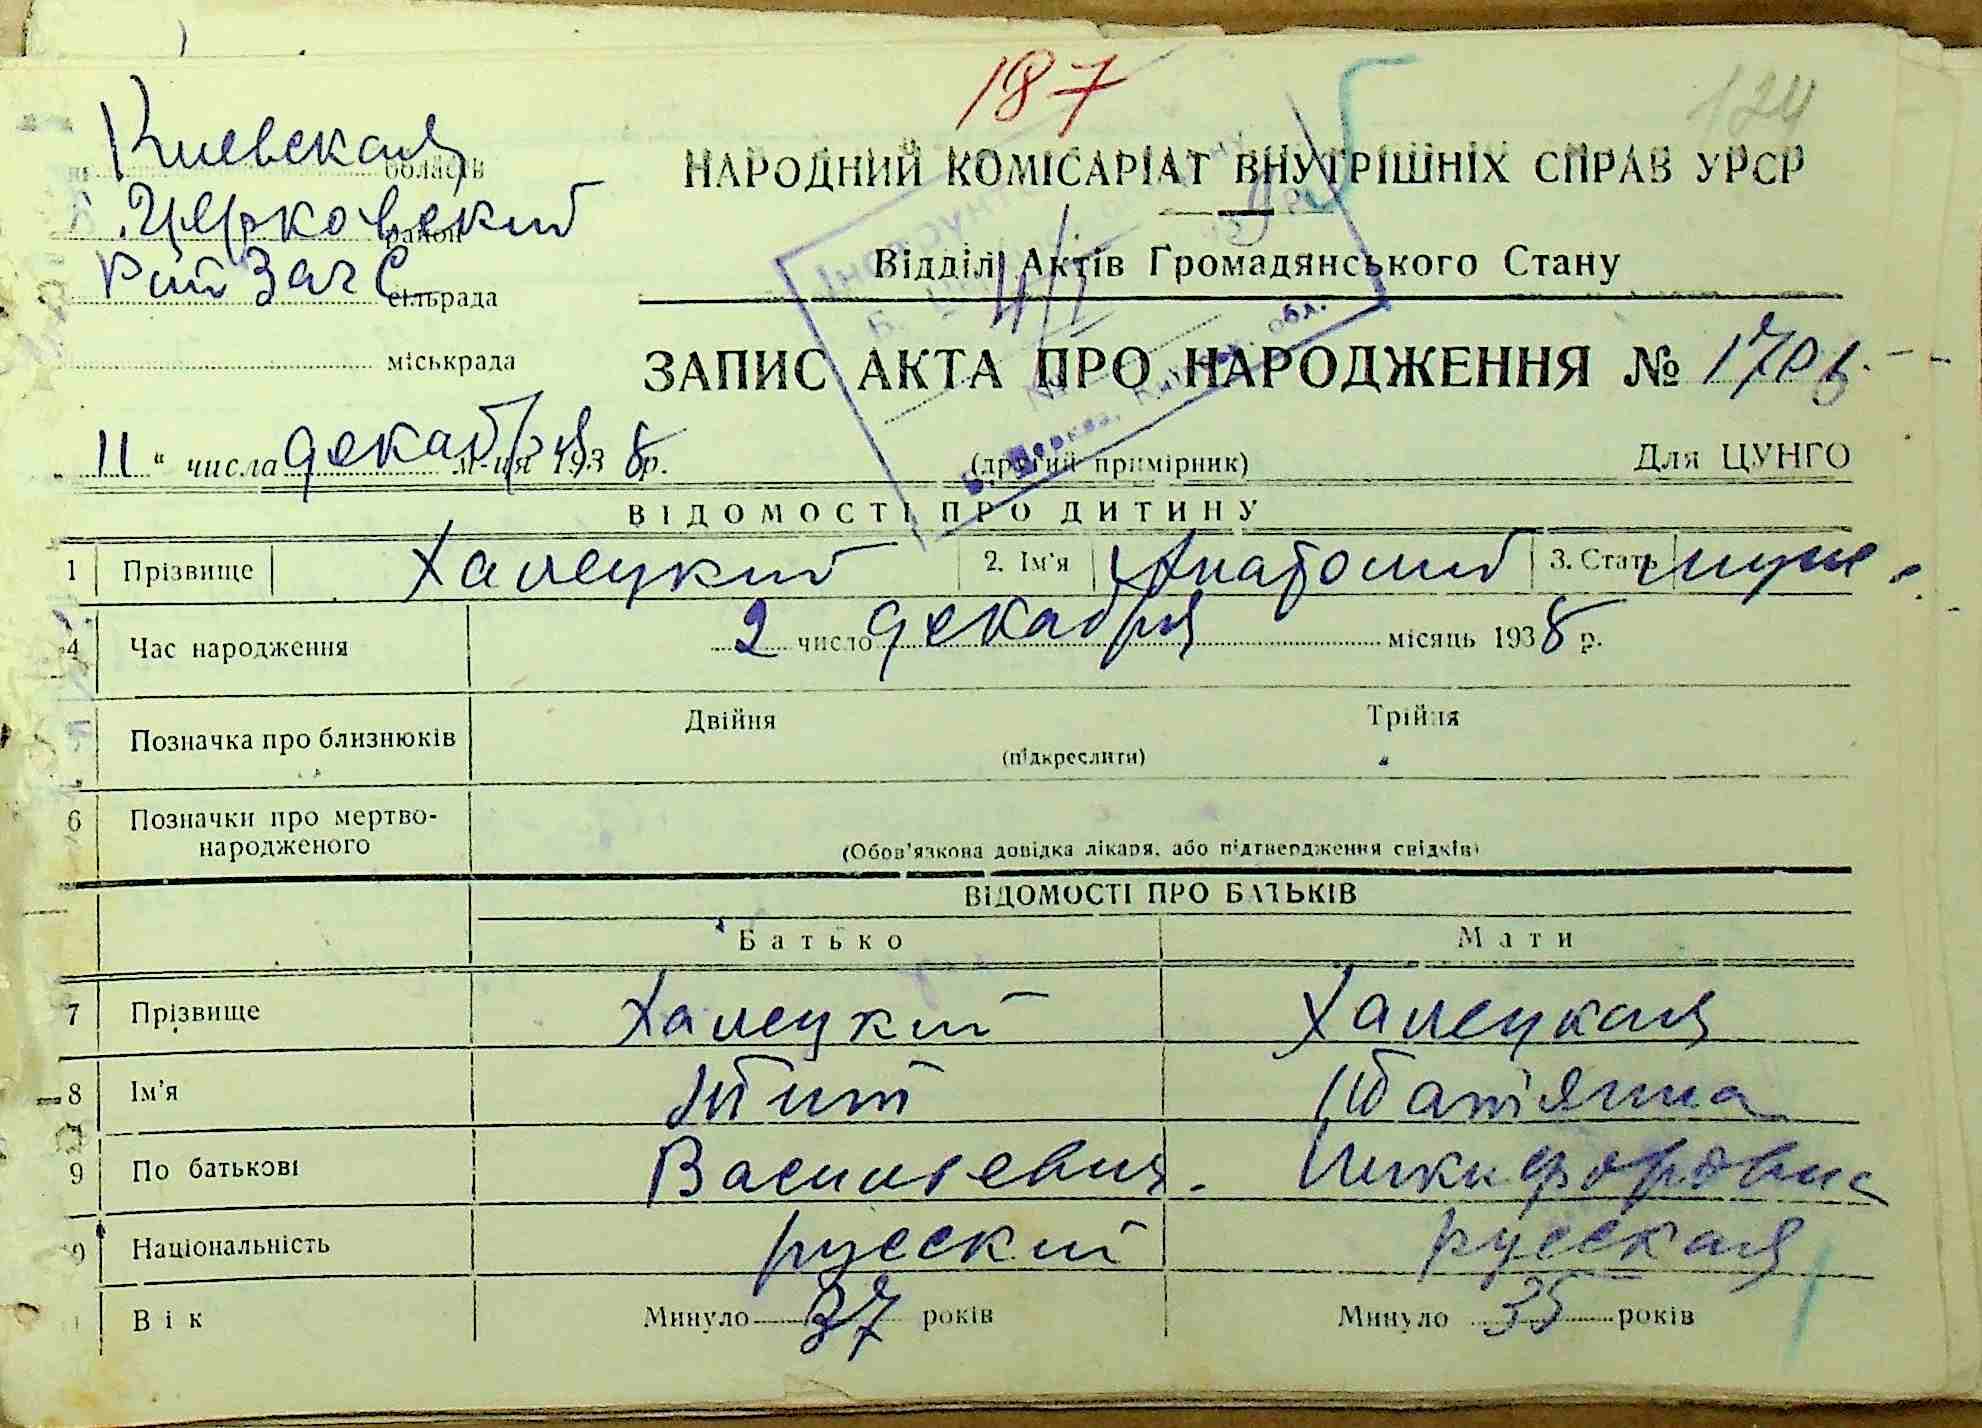 187
124
Киевская область
Б. Церковский район
РайЗагС сільрада
міськрада
НАРОДНИЙ КОМІСАРІАТ ВНУТРІШНІХ СПРАВ УРСР
Відділ Актів Громадянського Стану
ЗАПИС АКТА ПРО НАРОДЖЕННЯ №
„11“ числа декабря м-ця 1938 р.
(другий примірник)
Для ЦУНГО
ВІДОМОСТІ ПРО ДИТИНУ
1 Прізвище Халецкий 2. Ім'я Анатолий 3. Стать муж.
4 Час народження 2 число декабря місяць 1938 р.
Позначка про близнюків Двійня Трійня
(підкреслити)
6 Позначки про мертво-
народженого
(Обов'язкова довідка лікаря, або підтвердження свідків)
ВІДОМОСТІ ПРО БАТЬКІВ
Батько Мати
7 Прізвище Халецкий Халецкая
8 Ім'я Тит Татьяна
9 По батькові Васильевич. Никифоровна
Національність русский русская
Вік Минуло 37 років Минуло 35 років